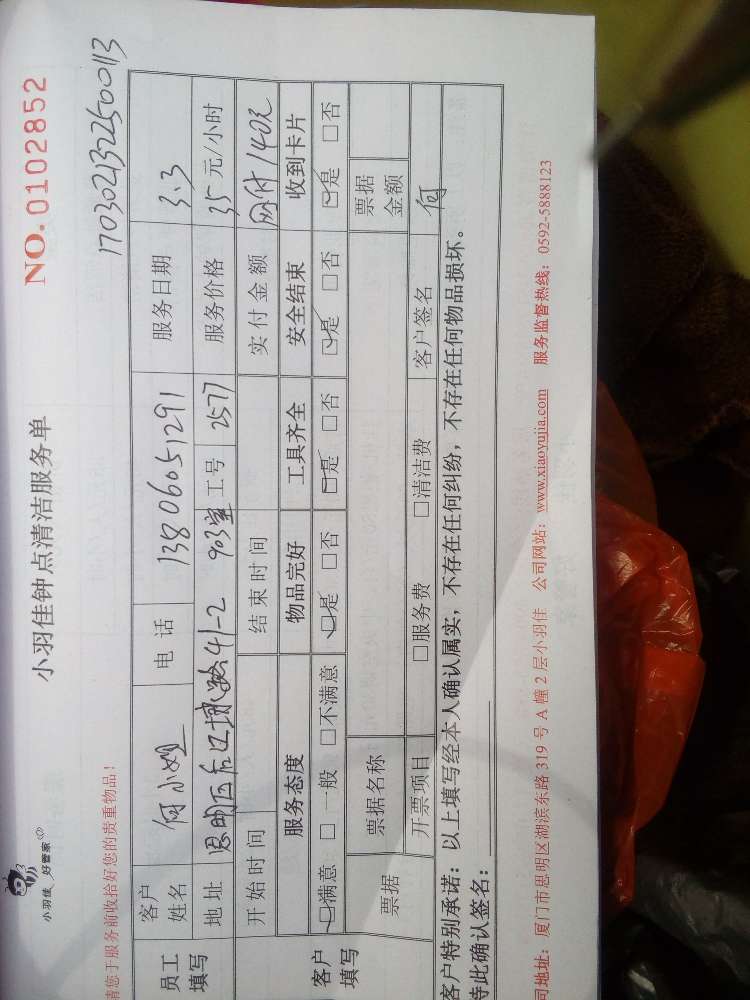 小羽佳 好管家
小羽佳钟点清洁服务单
NO. 0102852
请您于服务前收拾好您的贵重物品！
1703021322500113
员工填写
客户姓名 何小姐 电话 13806051291 服务日期 3.3
地址 思明区后江埭路41-2 903室 工号 2577 服务价格 35元/小时
开始时间 结束时间 实付金额 网付140元
客户填写
服务态度 物品完好 工具齐全 安全结束 收到卡片
☑满意 □一般 □不满意 ☑是 □否 ☑是 □否 ☑是 □否 ☑是 □否
票据 票据名称 票据金额
开票项目 □服务费 □清洁费 客户签名 何
客户特别承诺：以上填写经本人确认属实，不存在任何纠纷，不存在任何物品损坏。
特此确认签名：
司地址：厦门市思明区湖滨东路 319 号 A 幢 2 层小羽佳 公司网站：www.xiaoyujia.com 服务监督热线：0592-5888123